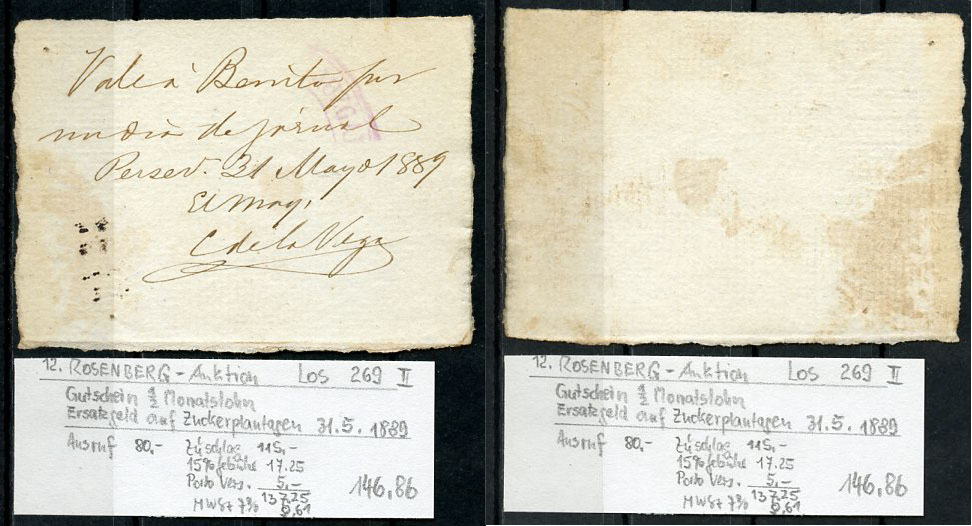 Vale á Benito por
un dia de jornal
Persev. 31 Mayo 1889
El may.
C de la Vega
12. ROSENBERG - Auktion Los 269 II
Gutschein 1/2 Monatslohn
Ersatzgeld auf Zuckerplantagen 31.5.1889
Ausruf 80,- Zuschlag 115,-
15% Gebühr 17.25
Porto Vers. 5,-
137.25
MWSt 7% 9,61
146,86
12. ROSENBERG - Auktion Los 269 II
Gutschein 1/2 Monatslohn
Ersatzgeld auf Zuckerplantagen 31.5.1889
Ausruf 80,- Zuschlag 115,-
15% Gebühr 17.25
Porto Vers. 5,-
137.25
MWSt 7% 9,61
146,86